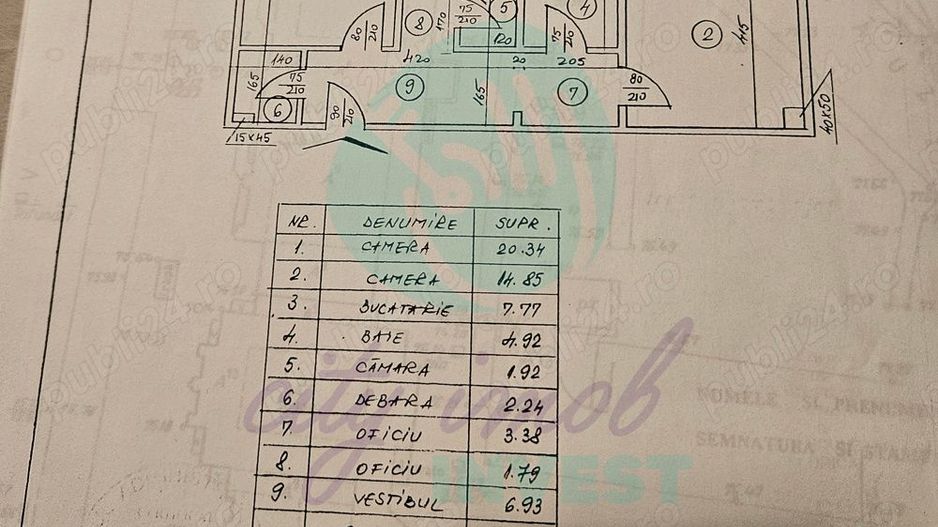 75
210
5
4
80
210
8
170
120
75
210
2
415
140
420
20
205
165
75
210
9
165
7
80
210
6
90
210
15x45
40x50
NR. DENUMIRE SUPR.
1. CAMERA 20.34
2. CAMERA 14.85
3. BUCATARIE 7.77
4. BAIE 4.92
5. CĂMARA 1.92
6. DEBARA 2.24
7. OFICIU 3.38
8. OFICIU 1.79
9. VESTIBUL 6.93
city imob
INVEST
publi24.ro